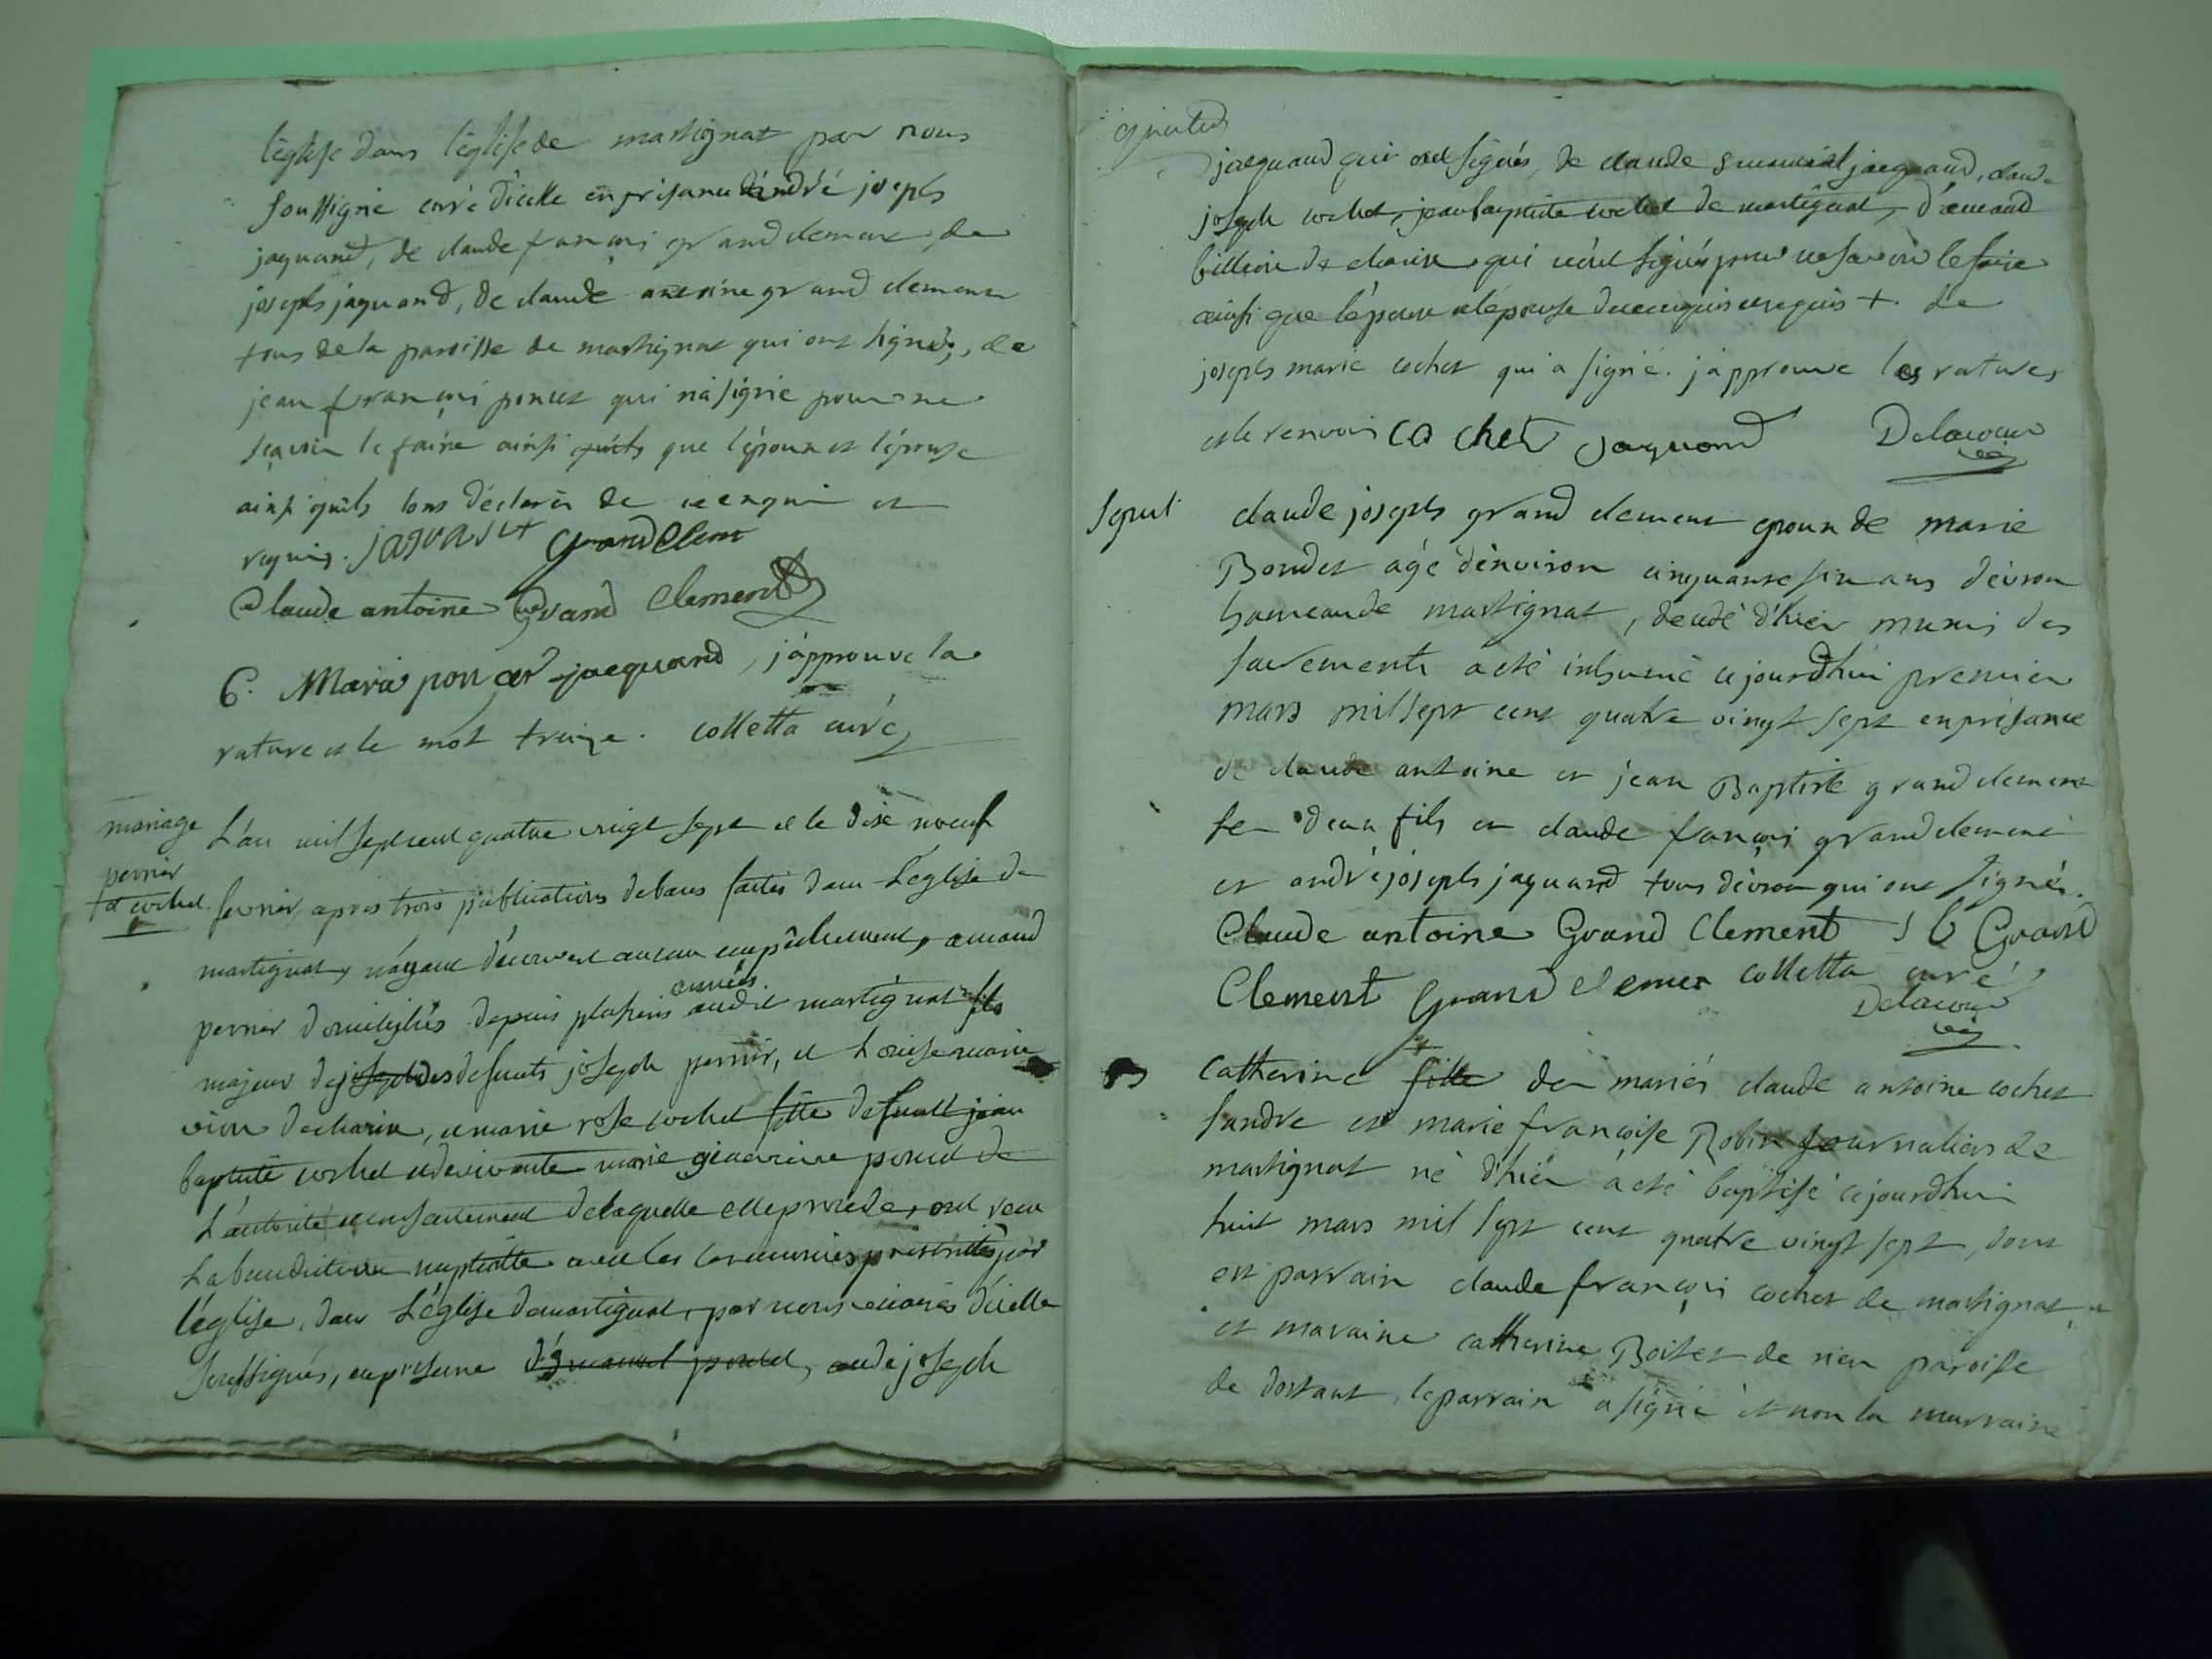 l'eglise dans l'eglise de martignat par nous
soussigné curé d'icelle en présance d'andré joseph
jaquand, de claude françois grand clement, de
joseph jaquand, de claude antoine grand clement
tous de la paroisse de martignat qui ont signés, de
jean françois poncet qui n'a signé pour ne
sçavoir le faire ainsi quils que l'époux et l'épouse
ainsi quils l'ont déclaré de ce enquis et
requis. jaquand grand Clem
Claude antoine Grand Clement
C. Maria poncet jacquand, j'approuve la
rature et le mot treize. colletta curé
mariage
perrier
et cochet.
L'an mil sept cent quatre vingt sept et le dix neuf
fevrier, apres trois publications de bans faites dans L'eglise de
martignat, n'ayant découvert aucun empêchement, amand
perrier domiciliés depuis plusieurs années audit martignat fils
majeur de joseph des defunts joseph perrier, et Louise marie
vion de charix, et marie rose cochet fille de feu jean
baptiste cochet et de vivante marie genevieve poncet de
L'autorité et consentement de laquelle elle procède, ont recu
La benediction nuptialle avec les ceremonies prescrites par
l'église, dans L'église de martignat, par nous vicaires d'icelle
soussignés, en présence d'emanuel poncet, andre joseph
jacquand qui ont signés, de claude emanuel jacquand, claude
joseph cochet, jean baptiste cochet de martignat, d'amand
billion de charix qui n'ont signés pour ne savoir le faire
ainsi que l'époux et l'épouse de ce enquis et requis + de
joseph marie cochet qui a signé. j'approuve les ratures
et le renvoi cochet jaquand Delacour
sepul
claude joseph grand clement epoux de marie
Bondet agé d'environ cinquante six ans d'évron
hameau de martignat, décédé d'hier munis des
sacrements a eté inhumé cejourd'hui premier
mars mil sept cent quatre vingt sept en présance
de claude antoine et jean Baptiste grand clement
ses deux fils et claude françois grand clement
et andré joseph jaquand tous d'évron qui ont signés.
Claude antoine Grand Clement J b Grand
Clement Grand clemen colletta curé
Delacour
Catherine fille des mariés claude antoine cochet
sandre et marie françoise Robin journaliers de
martignat né d'hier a eté baptisé cejourd'hui
huit mars mil sept cent quatre vingt sept, dont
est parrain claude françois cochet de martignat
et maraine catherine Boitet de rien paroisse
de dortant, le parrain a signé et non la marraine